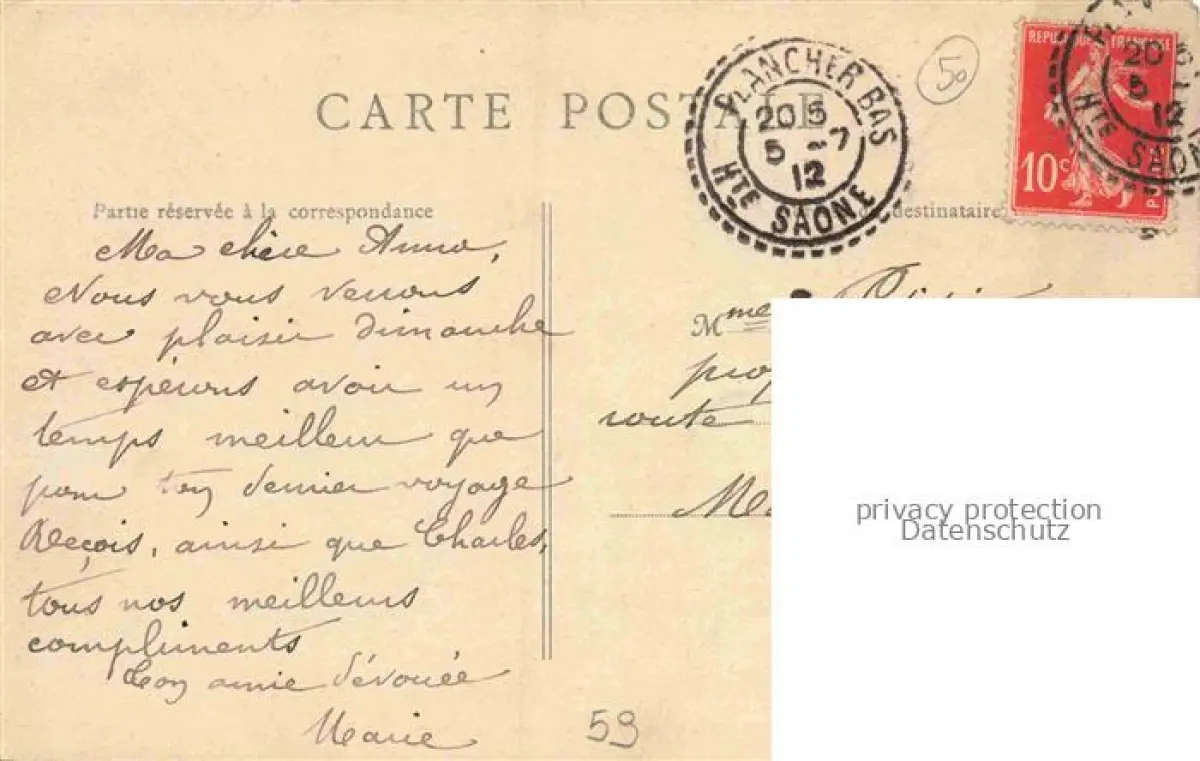 CARTE POSTALE
PLANCHER BAS
20 5
5 -7
12
Hte SAONE
50
REPUBLIQUE FRANÇAISE
10c
20
5
12
Hte SAONE
Partie réservée à la correspondance
destinataire
Ma chère Anna,
Nous vous verrons
avec plaisir dimanche
et espérons avoir un
temps meilleur que
pour ton dernier voyage
Reçois, ainsi que Charles,
tous nos meilleurs
compliments
Ton amie dévouée
Marie
59
Mme
route
privacy protection
Datenschutz